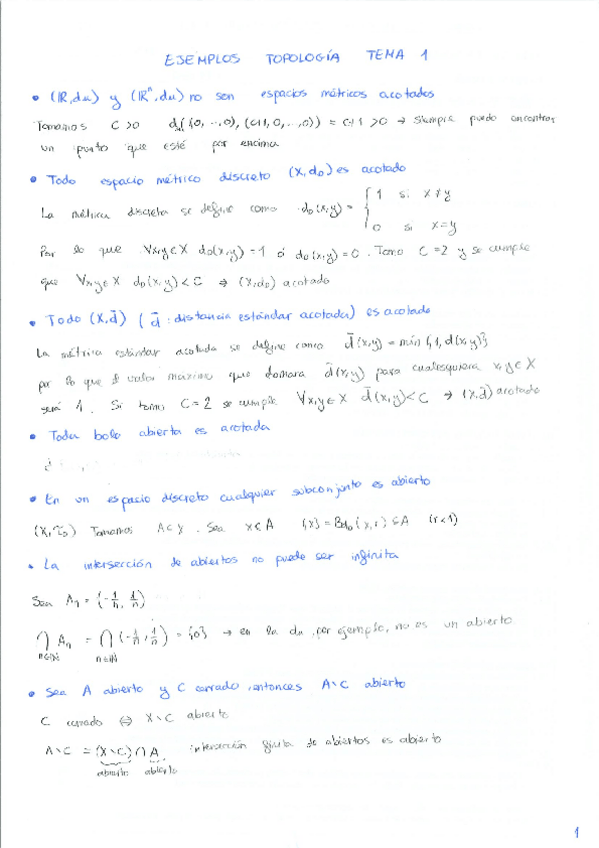 EJEMPLOS TOPOLOGÍA TEMA 1
• (ℝ,du) y (ℝⁿ,du) no son espacios métricos acotados
Tomamos C>0 du((0,...,0),(C+1,0,...,0)) = C+1 >0 → Siempre puedo encontrar
un punto que esté por encima
• Todo espacio métrico discreto (X,d₀) es acotado
La métrica discreta se define como d₀(x,y) = { 1 si x≠y
0 si x=y
Por lo que ∀x,y∈X d₀(x,y)=1 ó d₀(x,y)=0. Tomo C=2 y se cumple
que ∀x,y∈X d₀(x,y)<C ⇒ (X,d₀) acotado
• Todo (X,d̄) (d̄: distancia estándar acotada) es acotado
La métrica estándar acotada se define como d̄(x,y) = mín{1,d(x,y)}
por lo que el valor máximo que tomara d̄(x,y) para cualesquiera x,y∈X
será 1. Si tomo C=2 se cumple ∀x,y∈X d̄(x,y)<C → (X,d̄) acotado
• Toda bola abierta es acotada
• En un espacio discreto cualquier subconjunto es abierto
Tomamos A⊂X. Sea x∈A {x} = Bd₀(x,r) ⊆A (r<1)
• La intersección de abiertos no puede ser infinita
Sea Aₙ = (-1/n, 1/n)
⋂ Aₙ = ⋂ (-1/n, 1/n) = {0} → en la du, por ejemplo, no es un abierto
n∈ℕ n∈ℕ
• Sea A abierto y C cerrado, entonces A\C abierto
C cerrado ⇔ X\C abierto
A\C = (X\C) ∩ A intersección finita de abiertos es abierto
abierto abierto
1